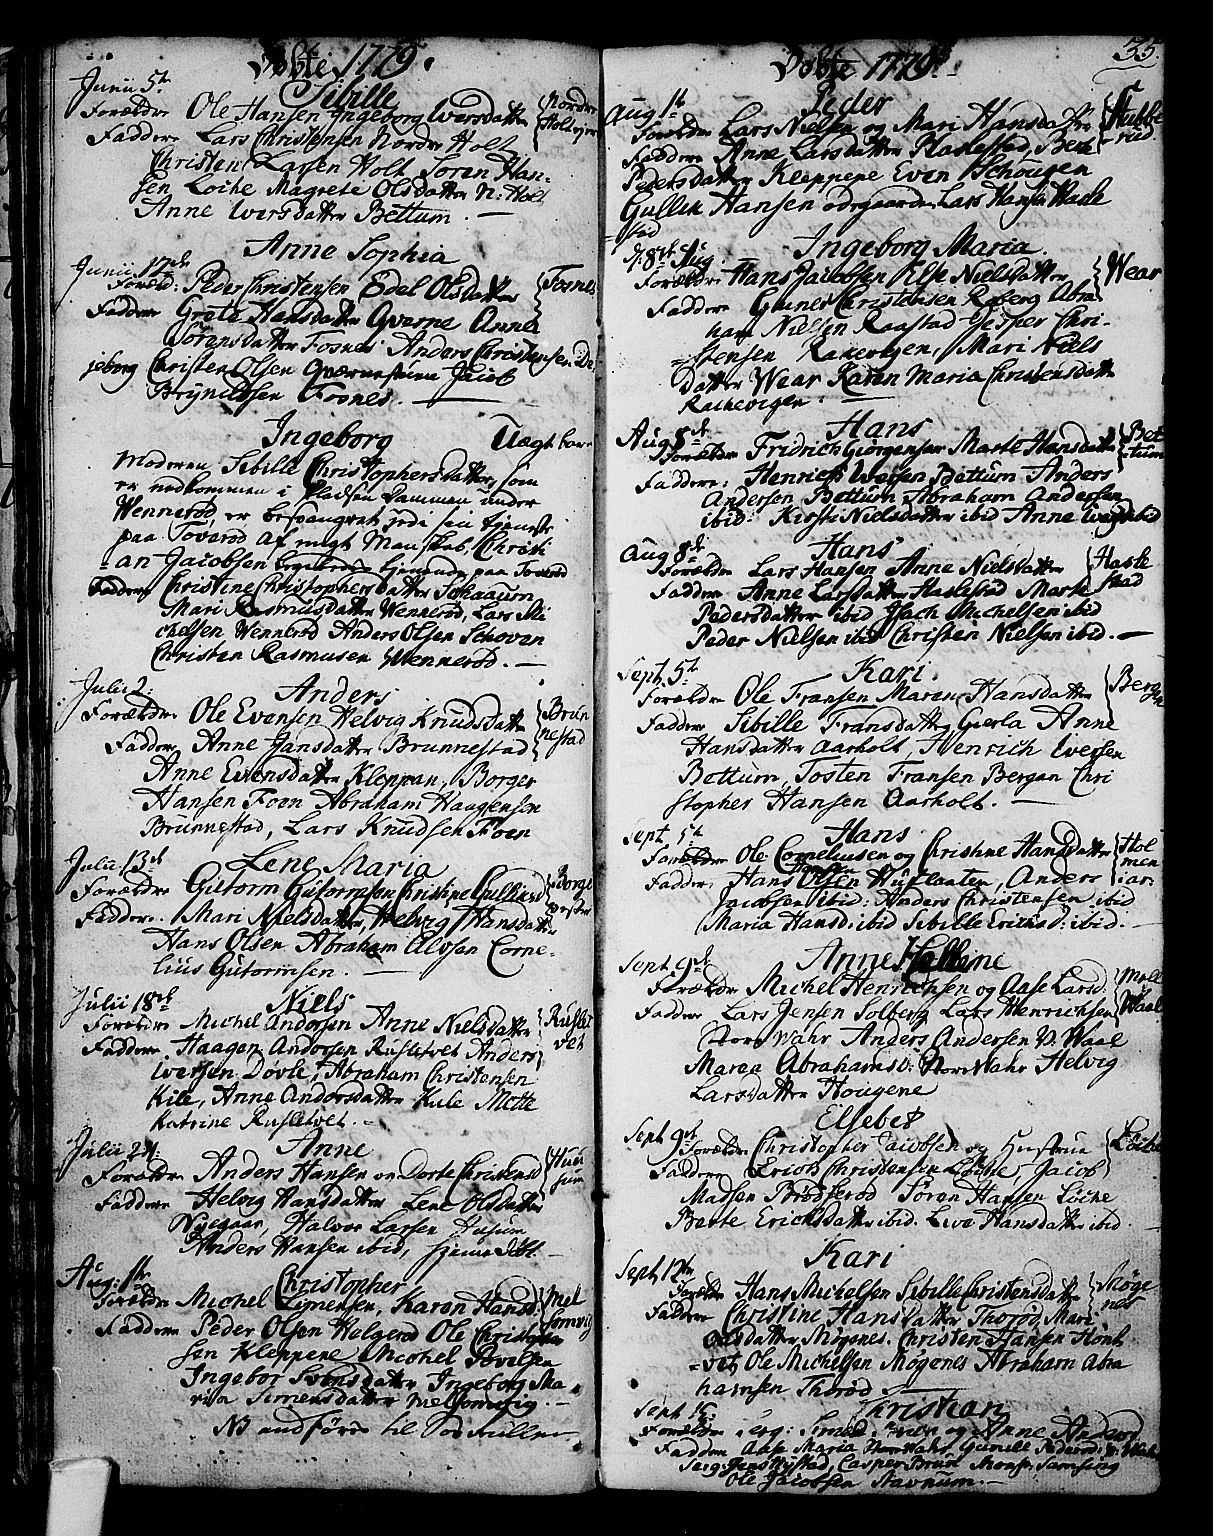 Døbte 1779.
Junii 5te
Sibille
Forældre Ole Hansen Ingeborg Iversdatter Nordre
Faddere Lars Christensen Nordre Holt
Christen Larsen Holt Søren Han-
sen Løche Magrete Olsdatter N: Holt
Anne Iversdatter Bettum. —
Anne Sophia
Junii 17de
Foræld: Peder Christensen Edel Olsdatter Fosnes
Faddere Grete Hansdatter Qverne Anne
Sørensdatter Fosnes Anders Christensen
jeborg Christen Olsen Jacob
Brynildsen Fosnes. —
Ingeborg Uægte barn
Moderen Sibille Christophersdatter, som
er nedkommen i Pladsen Dammen under
Wennerød er i sin tjeneste
paa Toverød af Mandskab, Christi
-an Jacobsen tjenende paa Toverød
Faddere Christine Christophersdatter
Mari Rasmusdatter Wennerød, Lars Mi
chelsen Wennerød Anders Olsen Schoven
Christen Rasmusen Wennerød. —
Julii 2:
Anders
Forældre Ole Evensen Helvig Knudsdatter Brun
nestad
Faddere Anne Jansdatter Brunnestad
Anne Evensdatter Kleppan, Borger
Hansen Foen Abraham Haagensen
Brunnestad, Lars Knudsen Foen
Julii 13de
Lene Maria
Forældre Gutorm Gutormsen Christine Gulliksd Borge
Faddere. Mari Nielsdatter, Helvig Hansdatter
Hans Olsen Abraham Olvsen Corne-
lius Gutormsen. —
Julii 18de
Niels
Forældre Michel Andersen Anne Nielsdatter Rusle
tvet
Faddere Haagen Andersen Rusletvet Anders
Iversen Døvle, Abraham Christensen
Kile, Anne Andersdatter Kile Mette
Katrine Rusletvet. —
Julii 24:
Anne
Forældre Anders Hansen og Dorte Christensd Huu
sum
Faddere Helvig Hansdatter Lene Olsdatter
Nyegaar, Halvor Larsen Husum
Anders Hansen ibid, hjemedøbt —
Aug: 1te
Christopher
Forældre Michel Simensen, Karen Hansd: Mel
somvig
Faddere Peder Olsen Helgerød Ole Christopher
sen Kleppene Michel Povelsen
Ingebor Svensdatter Ingeborg Ma
ria Simensdatter Melsomvig. —
NB
Døbte 1779. —
35.
Aug 1te
Peder
Forældre Lars Nielsen og Mari Hansdatter Stubbe
rud
Faddere Anne Larsdatter Haslestad, Berte
Pedersdatter Kleppene Even Schougen
Gullik Hansen ødegaarden Lars Hansen Hasle
stad
d: 8de Aug.
Ingeborg Maria
Forældre Hans Jacobsen Else Nielsdatter Wear
Faddere Guner Christensen Raberg Abra
ham Nielsen Raastad Jesper Chri-
-stensen Rakevigen, Mari Niels
datter Wear Karen Maria Christensdatter
Rachevigen.
Aug 8de
Hans
Forældre Fridrich Giørgensen Marte Hansdatter Bet
tum
Faddere: Henrich Iversen Bettum Anders
Andersen Bettum Abraham Andersen
ibid: Kirsti Nielsdatter ibid Anne ibid
Aug 8de
Hans
Forældre Lars Hansen Anne Nielsdatter Hasle
stad
Faddere Anne Larsdatter Haslestad Marte
Pedersdatter ibid Isach Michelsen ibid
Peder Nielsen ibid Christen Nielsen ibid. —
Sept. 5te
Kari.
Forældre Ole Fransen Maren Hansdatter Berg
an
Faddere Sibille Fransdatter Gierla Anne
Hansdatter Aarholt, Henrich Iversen
Bettum, Tosten Fransen Bergan Chri
stopher Hansen Aarholt. —
Sept. 5te
Hans
Forældre Ole Corneliusen og Christine Hansdatter Hol
men
Hansen
Faddere: Hans Olsen Huflaaten, Anders
Jacobsen ibid: Anders Christensen ibid
Maria Hansd: ibid Sibille Ericksd: ibid. —
Sept 9de
Anne Helline
Forældre Michel Henrichsen og Aase Larsd. Mell
Waal
Faddere Lars Jensen Solberg Lars Henrichsen
Store Wahr Anders Andersen V. Waal
Maren Abrahamsd: Store Wahr Helvig
Larsdatter Hougene
Elsebet
Sept 9de
Forældre Christopher Jacobsen og Hustrue Løche
Faddere Erich Christensen Løche, Jacob
Madsen Brødserød Søren Hansen Løche
Berte Ericksdatter ibid. Live Hansdatter ibid.
Kari
Sept 12te
Forældre Hans Michelsen Sibille Christensdatter Møge
nes
Faddere Christine Hansdatter Thorød, Mari
Olsdatter Møgenes. Christen Hansen Hønt
-vet, Ole Michelsen Møgenes Abraham Abra
hamsen Thorød —
Sept 15
Christian
Forældre Serg: Simen og Anne Andersd
Faddere Aase Maria Store Wahr Gunild Pedersd:
Serg: Jens Nystad, Casper Brun Mons: Samsing
Ole Jacobsen Stavnum. —